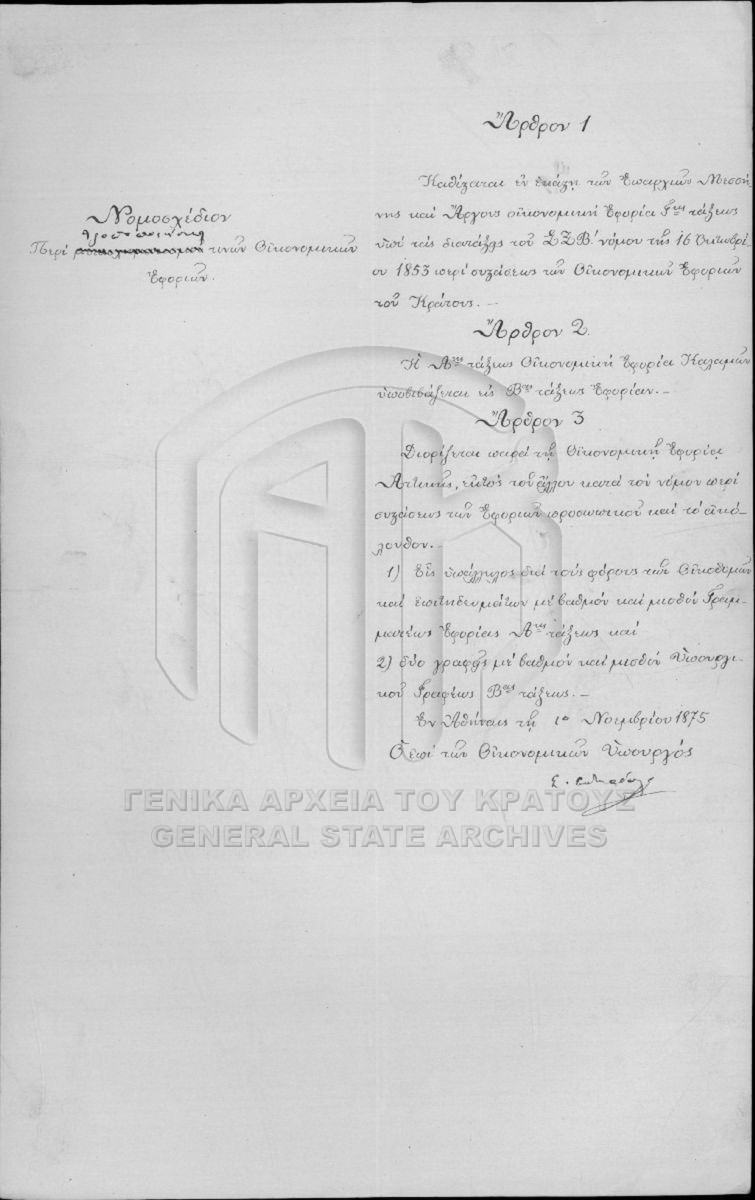 Νομοσχέδιον
Περὶ τινῶν Οἰκονομικῶν
Ἐφοριῶν.
Ἄρθρον 1
Καθίζαται ἐν ἑκάςῃ τῶν Ἐπαρχιῶν Μεσσή-
νης καὶ Ἄργους οἰκονομικὴ Ἐφορία Γης τάξεως
ὑπὸ τὰς διατάξεις τοῦ ΣΖΒ′ νόμου τῆς 16 Ὀκτωβρί-
ου 1853 περὶ συςάσεως τῶν Οἰκονομικῶν Ἐφοριῶν
τοῦ Κράτους. —
Ἄρθρον 2.
Ἡ Ατάξεως Οἰκονομικὴ Ἐφορία Καλαμῶν
ὑποβιβάζεται εἰς Βας τάξεως Ἐφορίαν. —
Ἄρθρον 3
Διορίζεται παρὰ τῇ Οἰκονομικῇ Ἐφορίᾳ
Ἀττικῆς, ἐκτὸς τοῦ ἄλλου κατὰ τὸν νόμον περὶ
συςάσεως τῶν Ἐφοριῶν προσωπικοῦ καὶ τὸ ἀκό-
λουθον. —
1) Εἷς ὑπάλληλος διὰ τοὺς φόρους τῶν Οἰκοδομῶν
καὶ ἐπιτηδευμάτων μὲ βαθμὸν καὶ μισθὸν Γραμ-
ματέως Ἐφορίας Αης τάξεως καὶ
2) δύο γραφεῖς μὲ βαθμὸν καὶ μισθὸν Ὑπουργι-
κοῦ Γραφέως Βας τάξεως. —
Ἐν Ἀθήναις τῇ 1ᵃ Νοεμβρίου 1875
Ὁ ἐπὶ τῶν Οἰκονομικῶν Ὑπουργός
ΓΕΝΙΚΑ ΑΡΧΕΙΑ ΤΟΥ ΚΡΑΤΟΥΣ
GENERAL STATE ARCHIVES